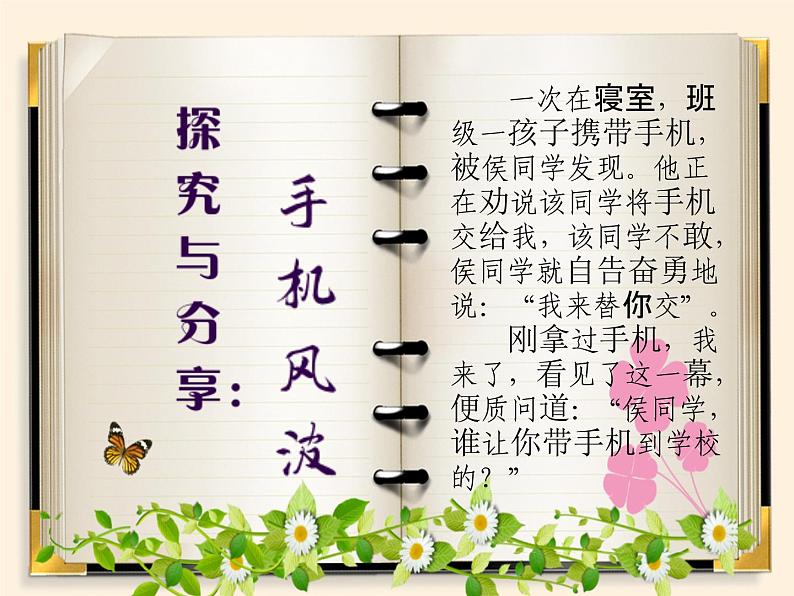 探究与分享：
手机风波
一次在寝室，班
级一孩子携带手机，
被侯同学发现。他正
在劝说该同学将手机
交给我，该同学不敢，
侯同学就自告奋勇地
说：“我来替你交”。
刚拿过手机，我
来了，看见了这一幕，
便质问道：“侯同学，
谁让你带手机到学校
的？”